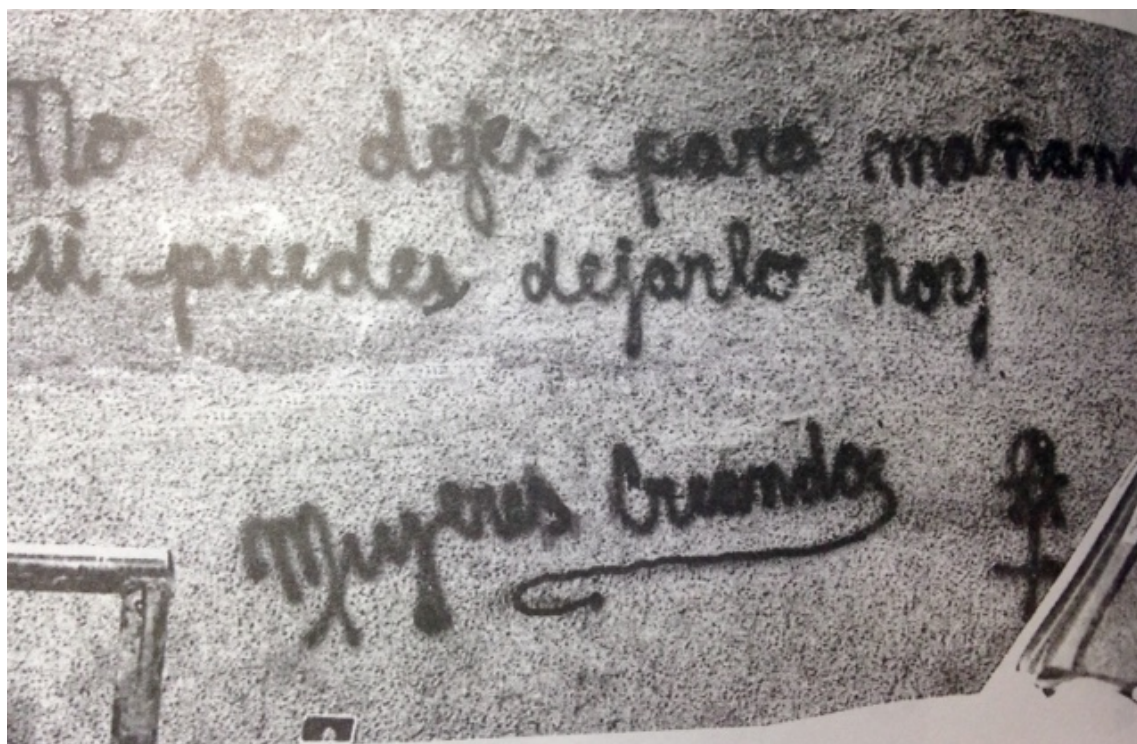 No lo dejes para mañana
si puedes dejarlo hoy
Mujeres Creando